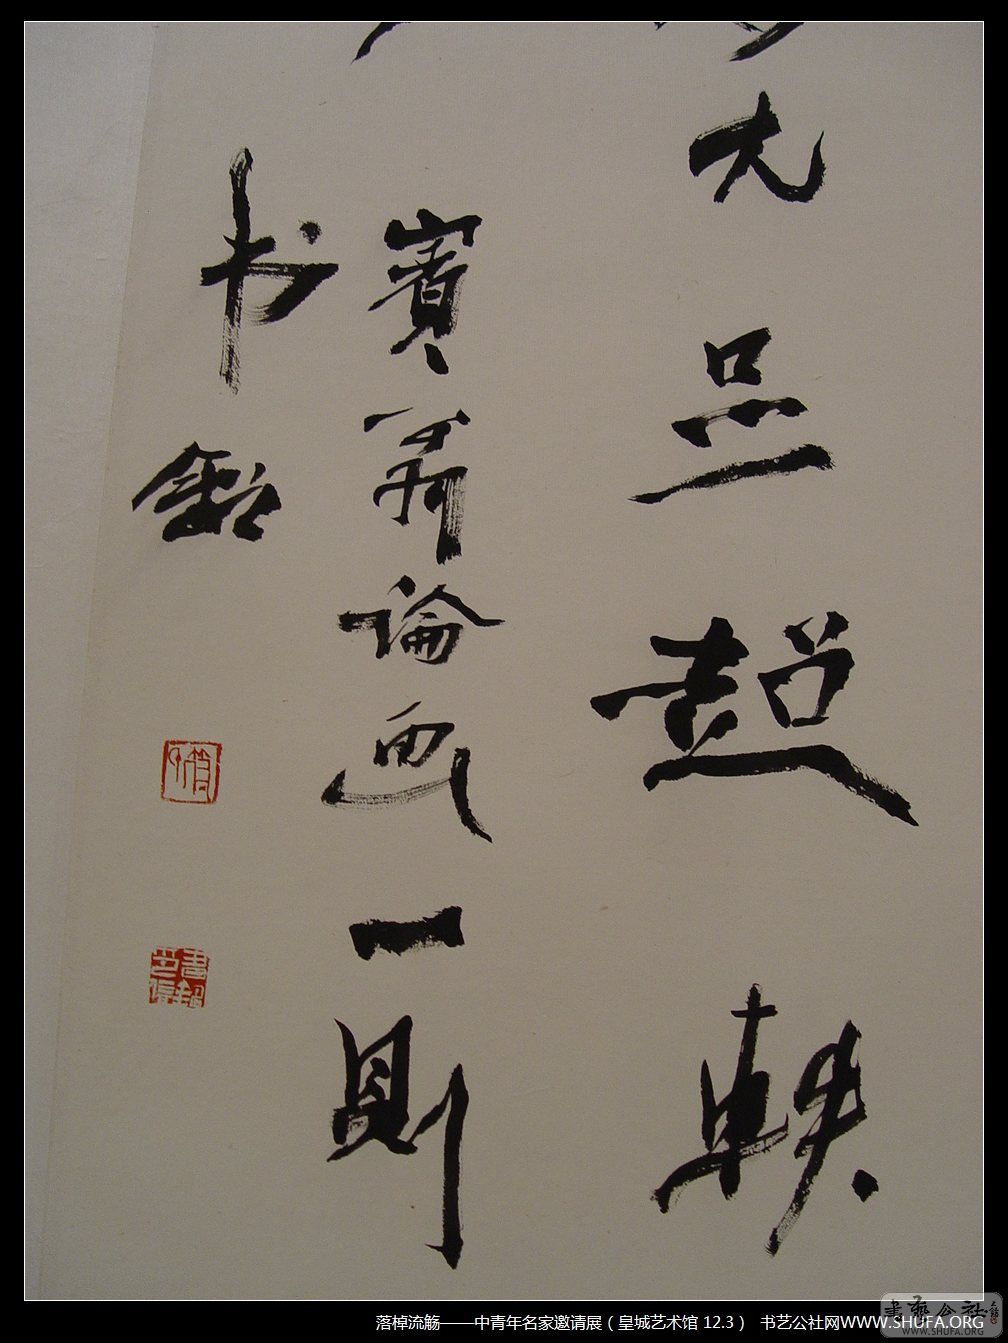 尤超軼
賓翁論畫一則
书
落棹流觞——中青年名家邀请展（皇城艺术馆 12.3） 书艺公社网WWW.SHUFA.ORG
書藝公社
WWW.SHUFA.ORG